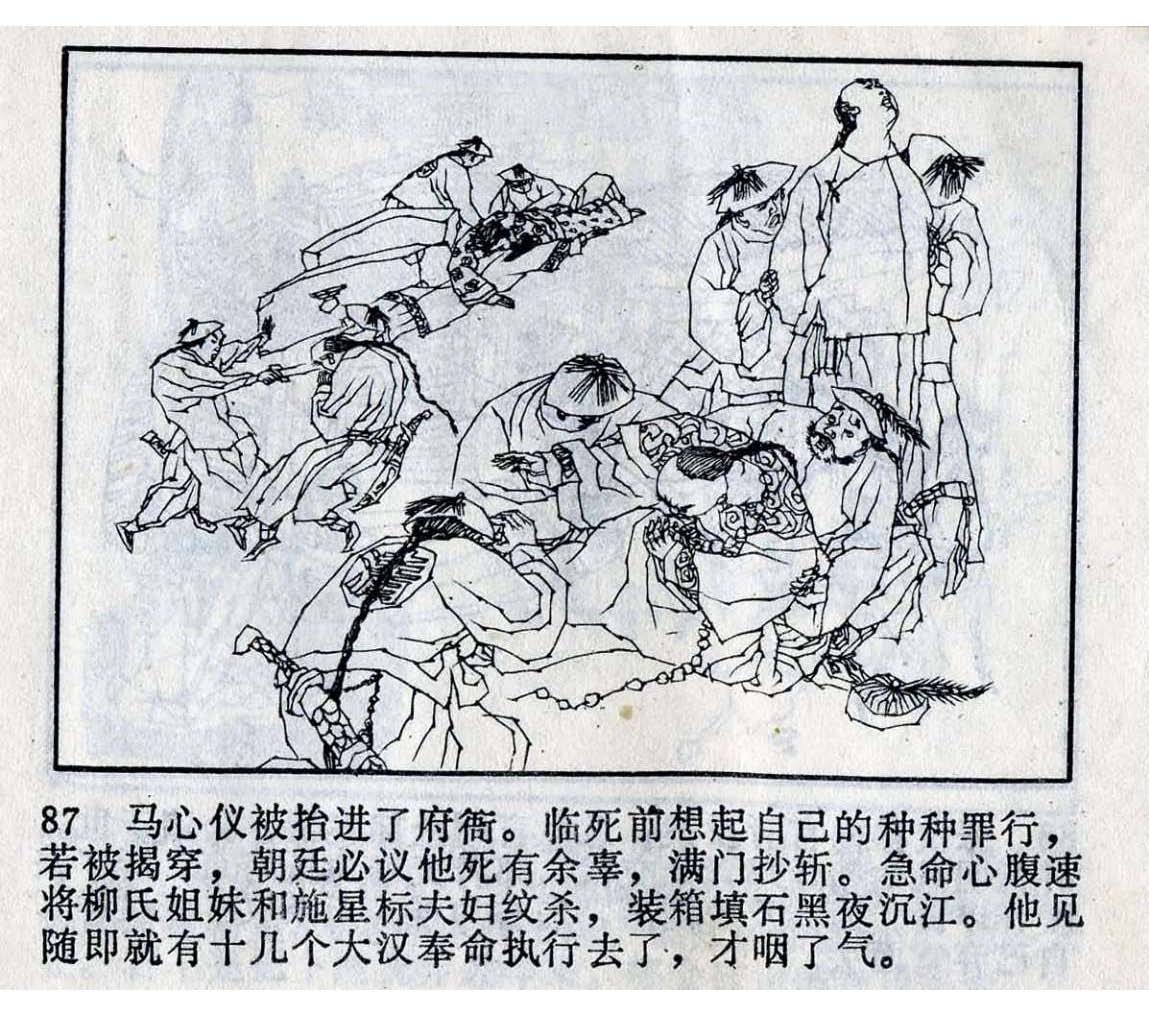 87 马心仪被抬进了府衙。临死前想起自己的种种罪行，
若被揭穿，朝廷必议他死有余辜，满门抄斩。急命心腹速
将柳氏姐妹和施星标夫妇纹杀，装箱填石黑夜沉江。他见
随即就有十几个大汉奉命执行去了，才咽了气。